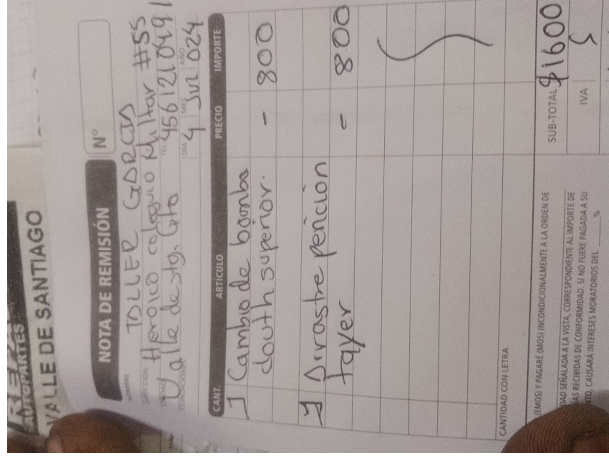 AUTOPARTES
VALLE DE SANTIAGO
NOTA DE REMISIÓN
N°
TOLLER GARCIA
Heroico colegio Militar #55
Valle de stg. Gto 4561210491
4 Jul 024
CANT. ARTÍCULO PRECIO IMPORTE
1 Cambio de bomba - 800
clouth superior.
1 Arrastre peñcion - 800
tayer
CANTIDAD CON LETRA
SUB-TOTAL $1600
IVA
(EMOS) Y PAGARÉ (MOS) INCONDICIONALMENTE A LA ORDEN DE
DAD SEÑALADA A LA VISTA, CORRESPONDIENTE AL IMPORTE DE
AS RECIBIDAS DE CONFORMIDAD. SI NO FUERE PAGADA A SU
NTO, CAUSARÁ INTERESES MORATORIOS DEL ____ %